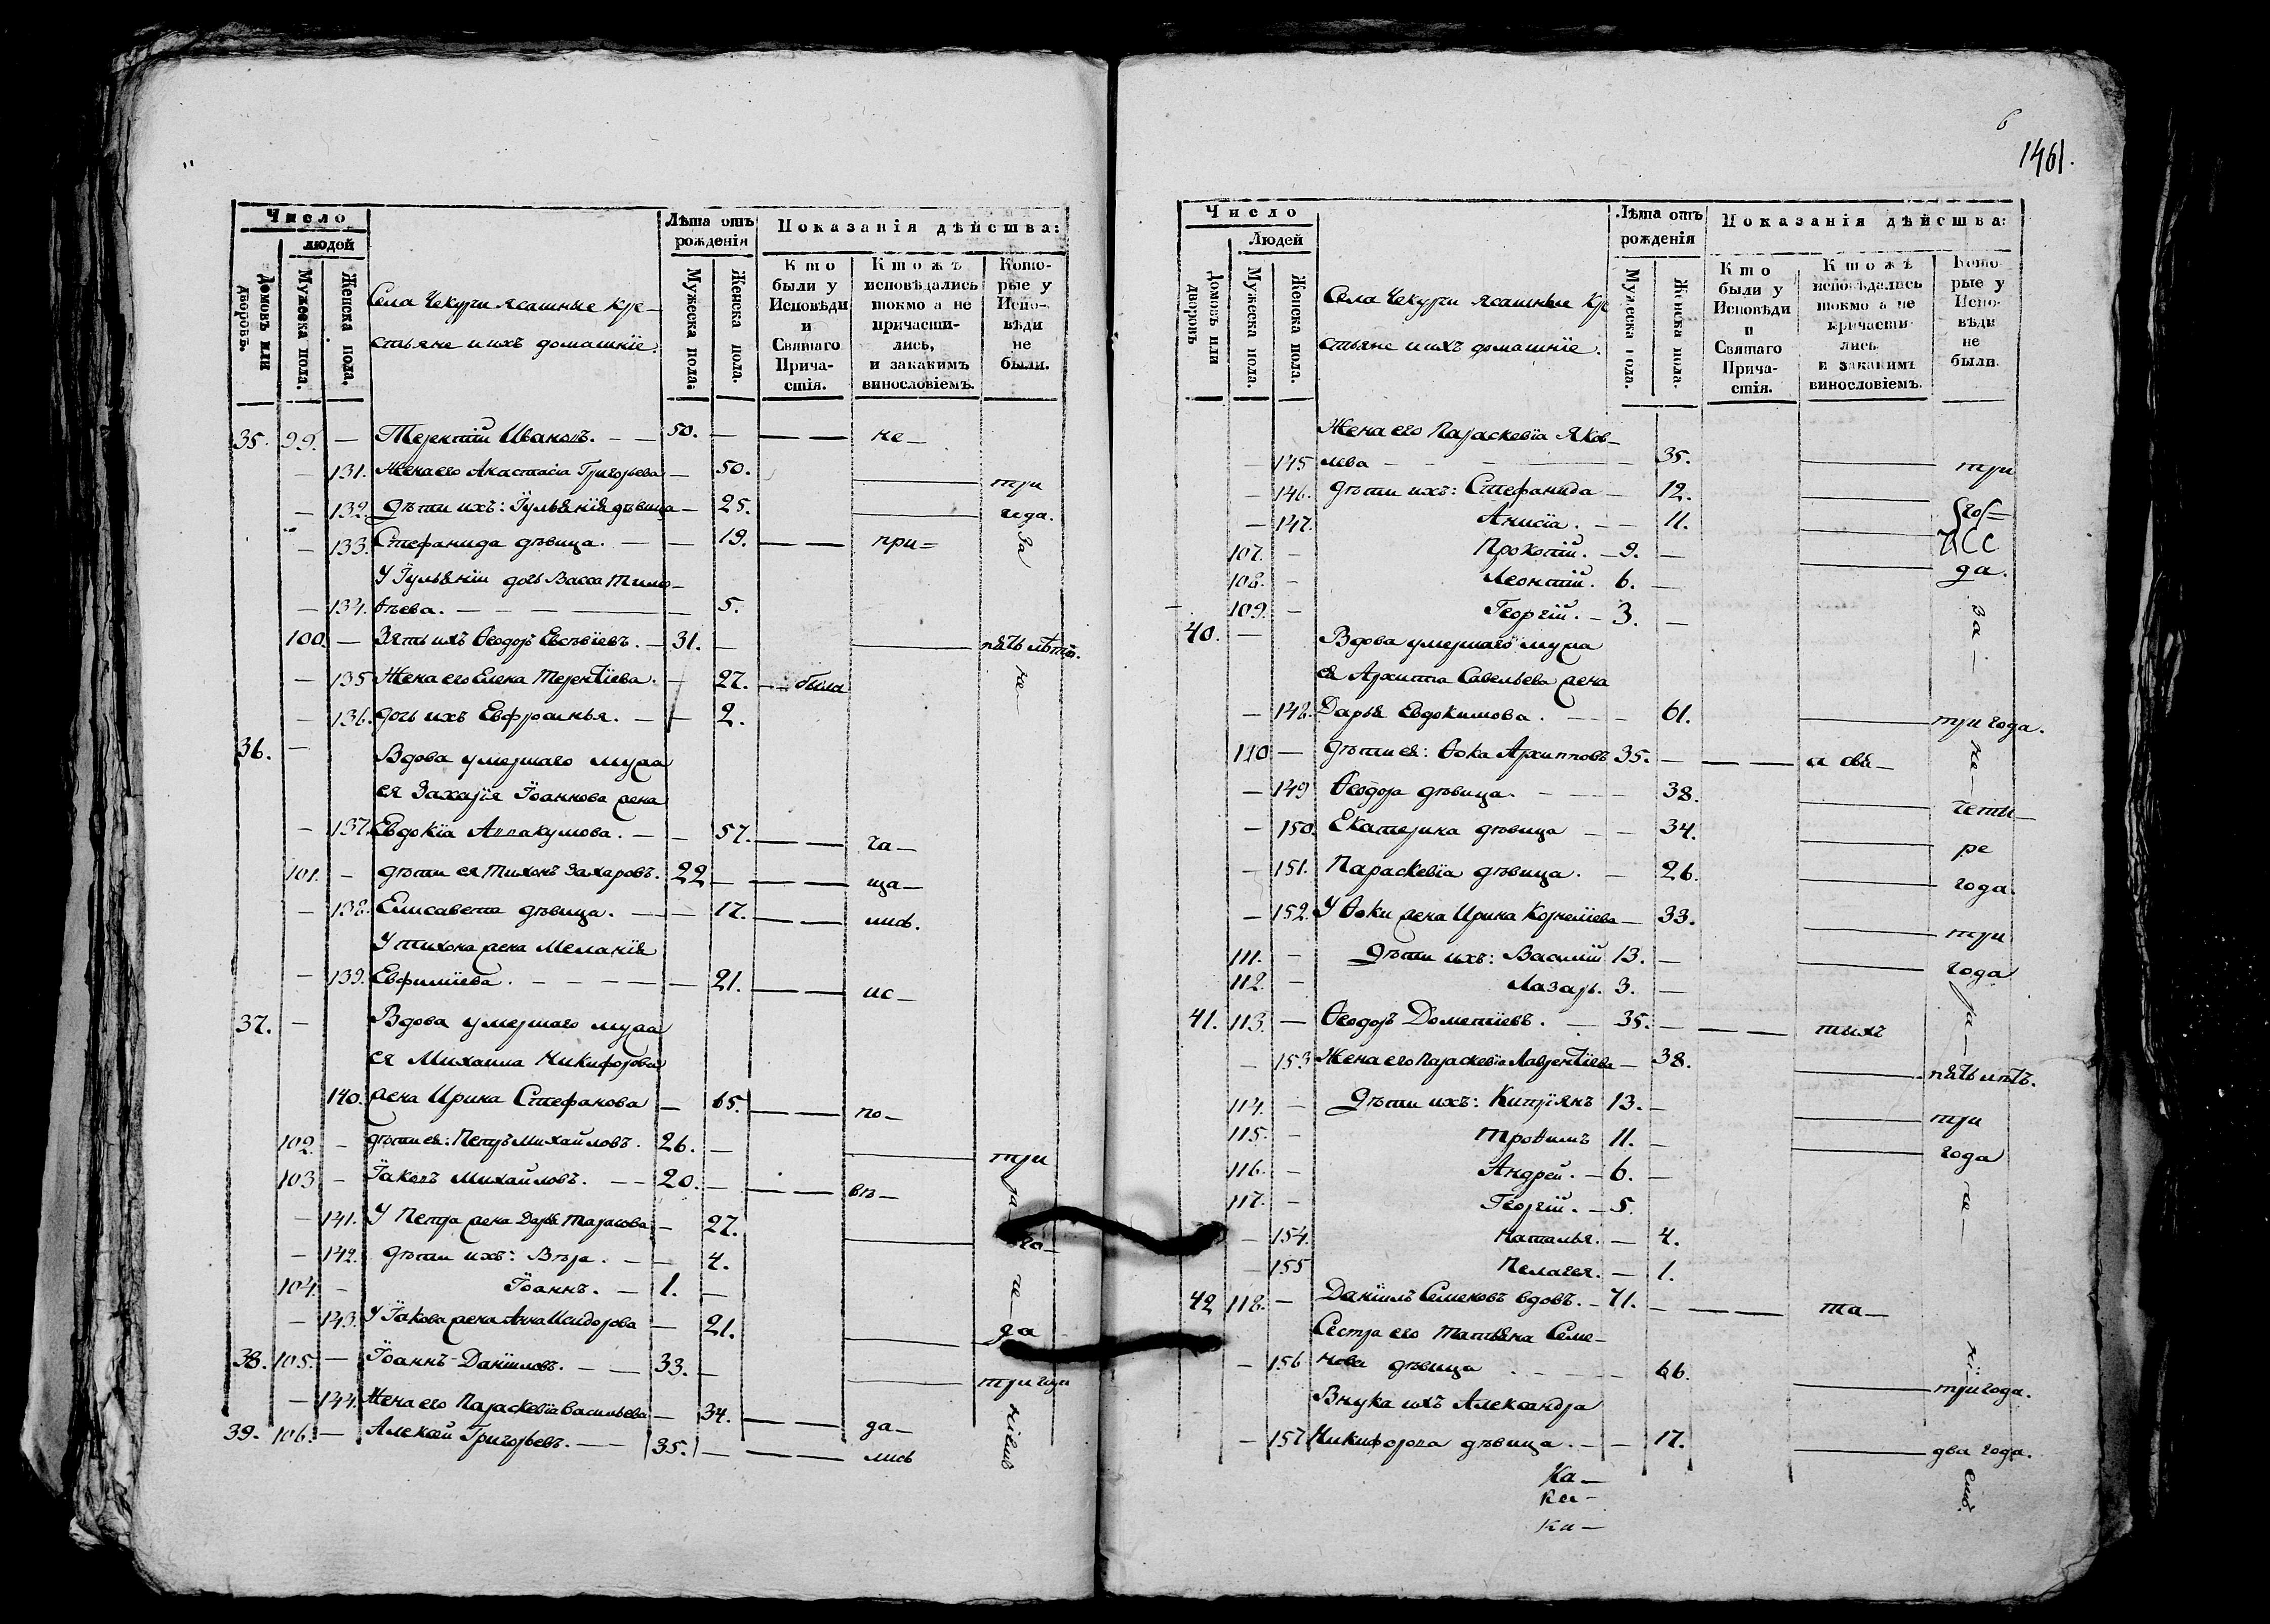 Число
людей
Домовъ или дворовъ.
Мужеска пола.
Женска пола.
Села Чекури ясашные кре-
стьяне и ихъ домашніе.
Лѣта отъ рожденія
Мужеска пола.
Женска пола.
Показанія дѣйства:
Кто были у Исповѣди и Святаго Прича-стія.
Ктожъ исповѣдались токмо а не причасти-лись, и закакимъ винословіемъ.
Кото-рые у Испо-вѣди не были.
35. 99. — Терентій Ивановъ. — — 50. — — — не —
— 131. Жена его Анастасіа Григорьева — 50. — три
— 132. дѣти ихъ: Іульянія дѣвица — 25. — года.
— 133. Стефанида дѣвица. — — 19. — — при= За
У Іульяніи дочь Васса Тимо-
— 134. ѳѣева. — — — — 5.
100. — Зять ихъ Ѳеодоръ Евсѣвіевъ. — 31. — — пять лѣтъ.
— 135 Жена его Елена Терентіева. — 27. — — была не —
— 136. дочь ихъ Евфросинья. — — 2.
36. — Вдова умершаго мужа
ея Захарія Іоаннова жена
— 137. Евдокіа Аввакумова. — — 57. — — ча —
101. — дѣти ея Тихонъ Захаровъ. 22 — — — ща —
— 138. Елисавета дѣвица. — — 17. — — лись.
У Тихона жена Меланія
— 139. Евфиміева. — — — — 21. — — ис —
37. — Вдова умершаго мужа
ея Михаила Никифорова
140. жена Ирина Стефанова — 65. — — по —
102. — дѣти ея: Петръ Михайловъ. 26. — — три
103. — Іаковъ Михайловъ. — — 20. — — — вѣ —
— 141. У Петра жена Дарья Тарасова — 27. — го —
— 142. дѣти ихъ: Вѣра. — — 4.
104. — Іоаннъ. — 1. —
— 143. У Іакова жена Анна Исидорова — 21. — да
38. 105. — Іоаннъ Даніиловъ. — — 33. — — три года
— 144. Жена его Параскевіа Васильева — 34. — — да —
39. 106. — Алексій Григорьевъ. — — 35. — — — лись
6
1461.
Число
Людей
Домовъ или дворовъ
Мужеска пола.
Женска пола.
Села Чекури ясашные Кре
стьяне и ихъ домашніе.
Лѣта отъ рожденія
Мужеска пола.
Женска пола.
Показанія дѣйства:
Кто были у Исповѣди и Святаго Прича-стія.
Ктожъ исповѣдались токмо а не причасти-лись и закакимъ винословіемъ.
Кото-рые у Испо-вѣди не были.
Жена его Параскевіа Яков-
— 145 лева — — — — 35. — три
— 146. дѣти ихъ: Стефанида — 12.
— 147. Анисіа. — — 11.
107. — Прокопій. — 9. —
108. — Леонтій. 6. — — да.
109. — Георгій. — 3. — за —
40. — Вдова умершаго мужа
ея Архиппа Савельева жена
— 148. Дарья Евдокимова. — — 61. — три года.
110 — дѣти ея: Ѳока Архипповъ 35. — — — а свя — не —
— 149 Ѳеодора дѣвица. — — — 38. — четы —
— 150. Екатерина дѣвица — — 34. — ре
— 151. Параскевіа дѣвица. — 26. — года.
— 152. У Ѳоки жена Ирина Корнеліева — 33. — три
111. — Дѣти ихъ: Василій 13. — — года
112. — Лазарь. 3. —
41. 113. — Ѳеодоръ Дометіевъ. — 35. — — — тыхъ
— 153 Жена его Параскевіа Лаврентіева — 38. — пять лѣтъ.
114. — Дѣти ихъ: Кипріянъ 13. — — три
115. — Троѳимъ 11. — — года
116. — Андрей. — 6. —
117. — Георгій. — 5.
— 154. Наталья. — 4.
— 155 Пелагея. — 1.
42 118. — Даніилъ Семеновъ вдовъ. — 71. — — — та —
Сестра его Татьяна Семе-
— 156 нова дѣвица — — 66. — три года.
Внука ихъ Александра
— 157 Никифорова дѣвица. — — 17. — два года.
Ка —
ка —
ка —